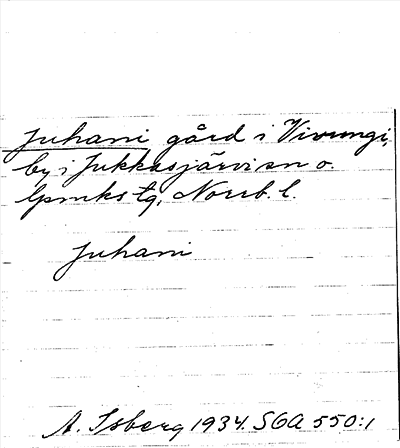 Juhani gård i Vivungi,
by i Jukkasjärvi sn o.
lpmks tg, Norrb. l.
Juhani
A. Isberg 1934. SOA 550:1